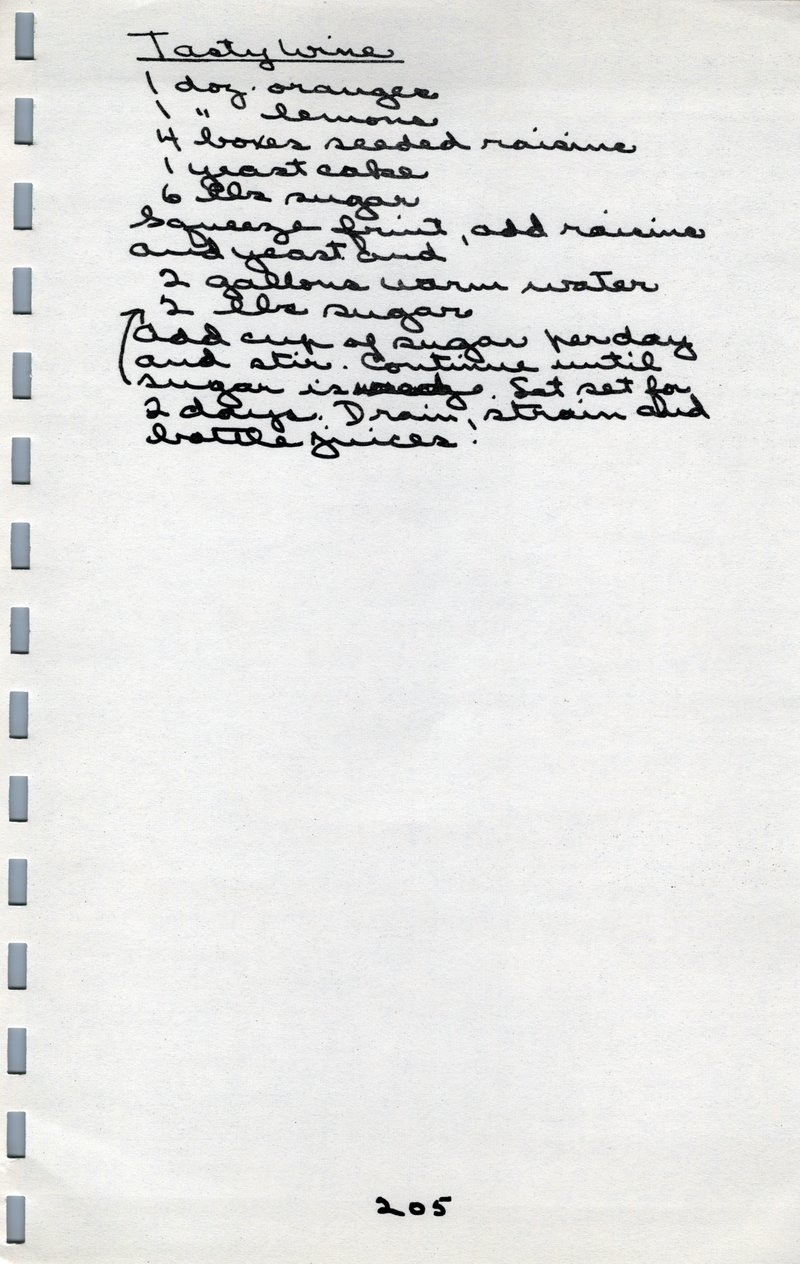 Tasty Wine
1 doz. oranges
1 " lemons
4 boxes seeded raisins
1 yeast cake
6 lbs sugar
Squeeze fruit, add raisins
and yeast and
2 gallons warm water
2 lbs sugar
add cup of sugar per day
and stir. Continue until
sugar is. Let set for
2 days. Drain, strain and
bottle juices!
205